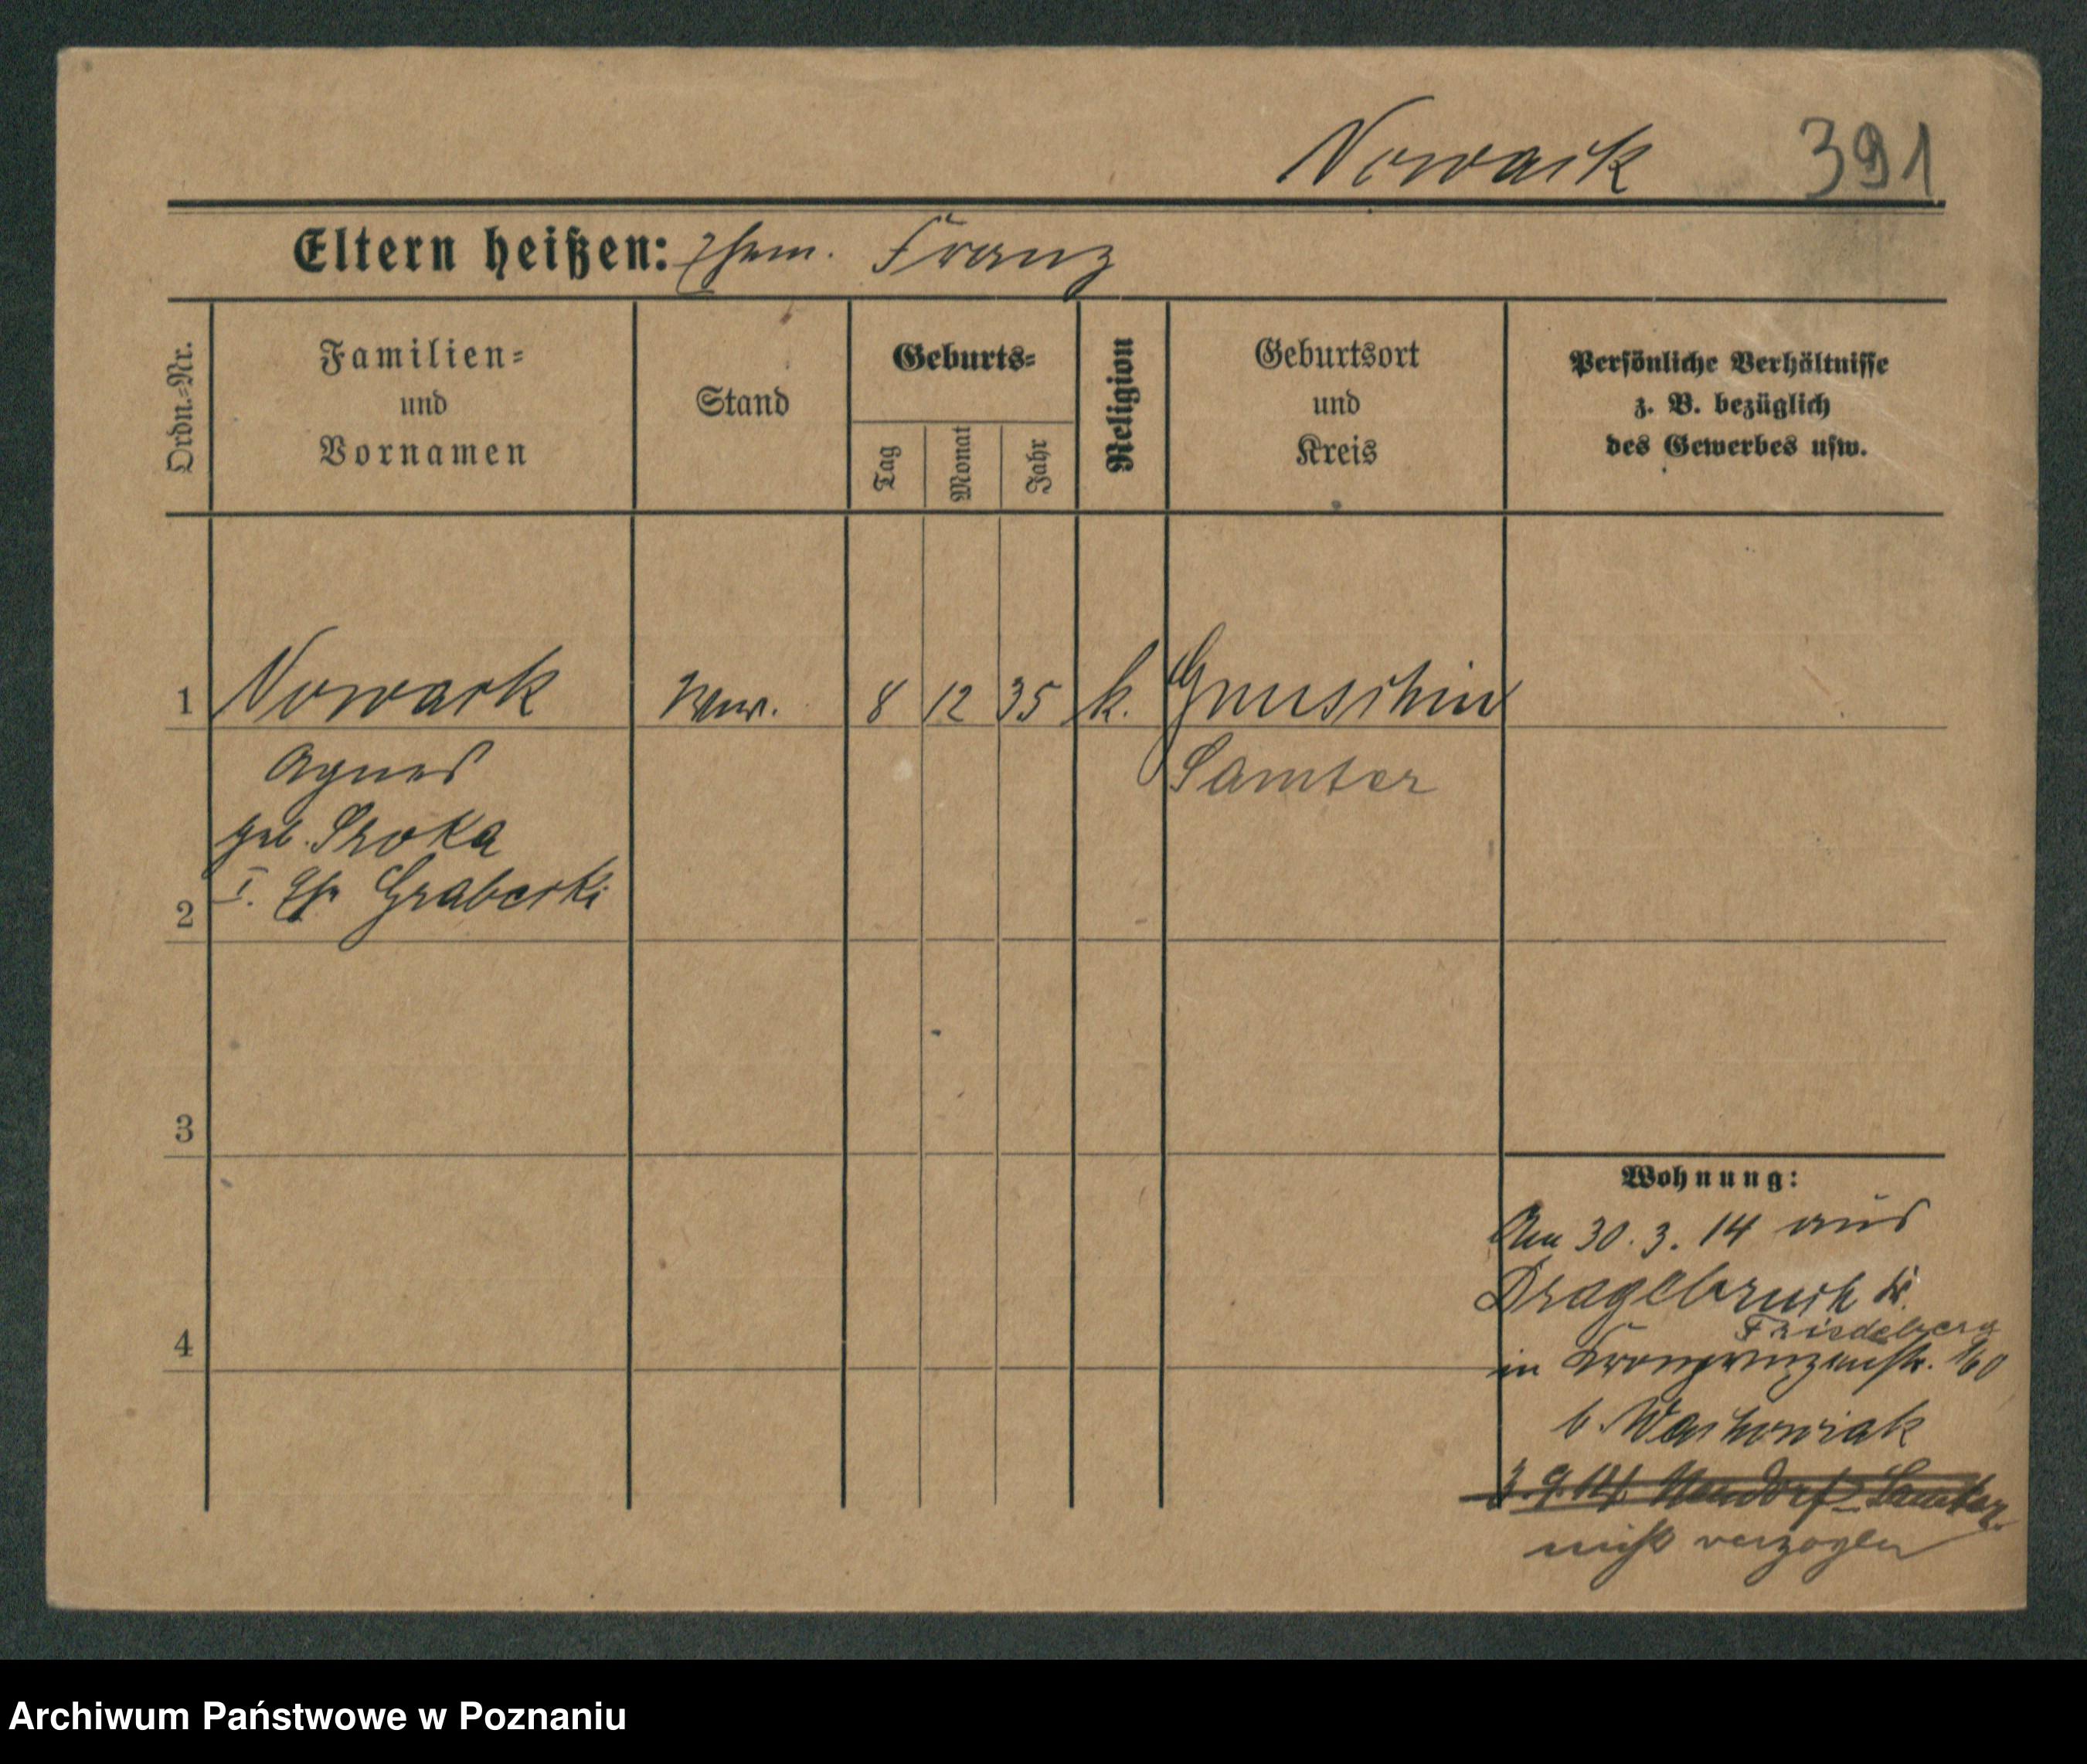 Nowack 391
Eltern heißen: Ehem. Franz
Ordn.=Nr.
Familien=
und
Vornamen
Stand
Geburts=
Tag
Monat
Jahr
Religion
Geburtsort
und
Kreis
Persönliche Verhältnisse
z. B. bezüglich
des Gewerbes usw.
1 Nowack Wwe. 8 12 35 k. Gnuschin
Agnes Samter
geb. Sroka
2 I. Ehe Graberski
3
Wohnung:
Am 30.3.14 aus
Dragebruch Kr.
Friedeberg
4
in Kronprinzenstr. 160
b. Wachowiak
3.9.14 Neudorf Samter
nicht verzogen
Archiwum Państwowe w Poznaniu